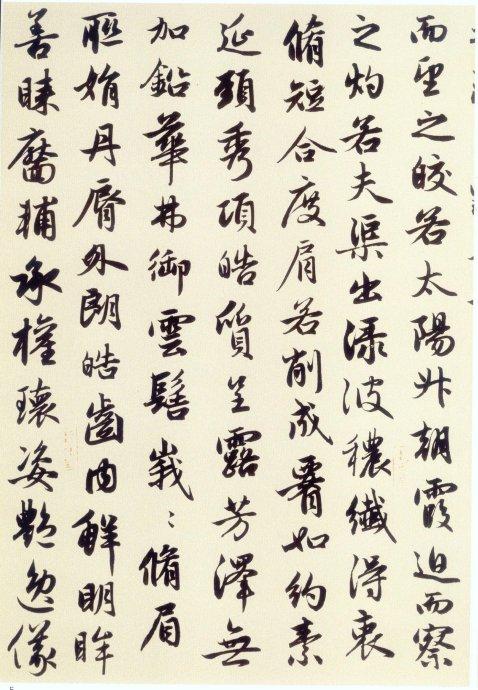 而望之皎若太陽升朝霞迫而察
之灼若夫渠出淥波穠纖得衷
脩短合度肩若削成腰如約素
延頸秀項皓質呈露芳澤無
加鉛華弗御雲髻峩〻脩眉
聮娟丹脣外朗皓齒内鮮明眸
善睞靨輔承權瓌姿艷逸儀
5